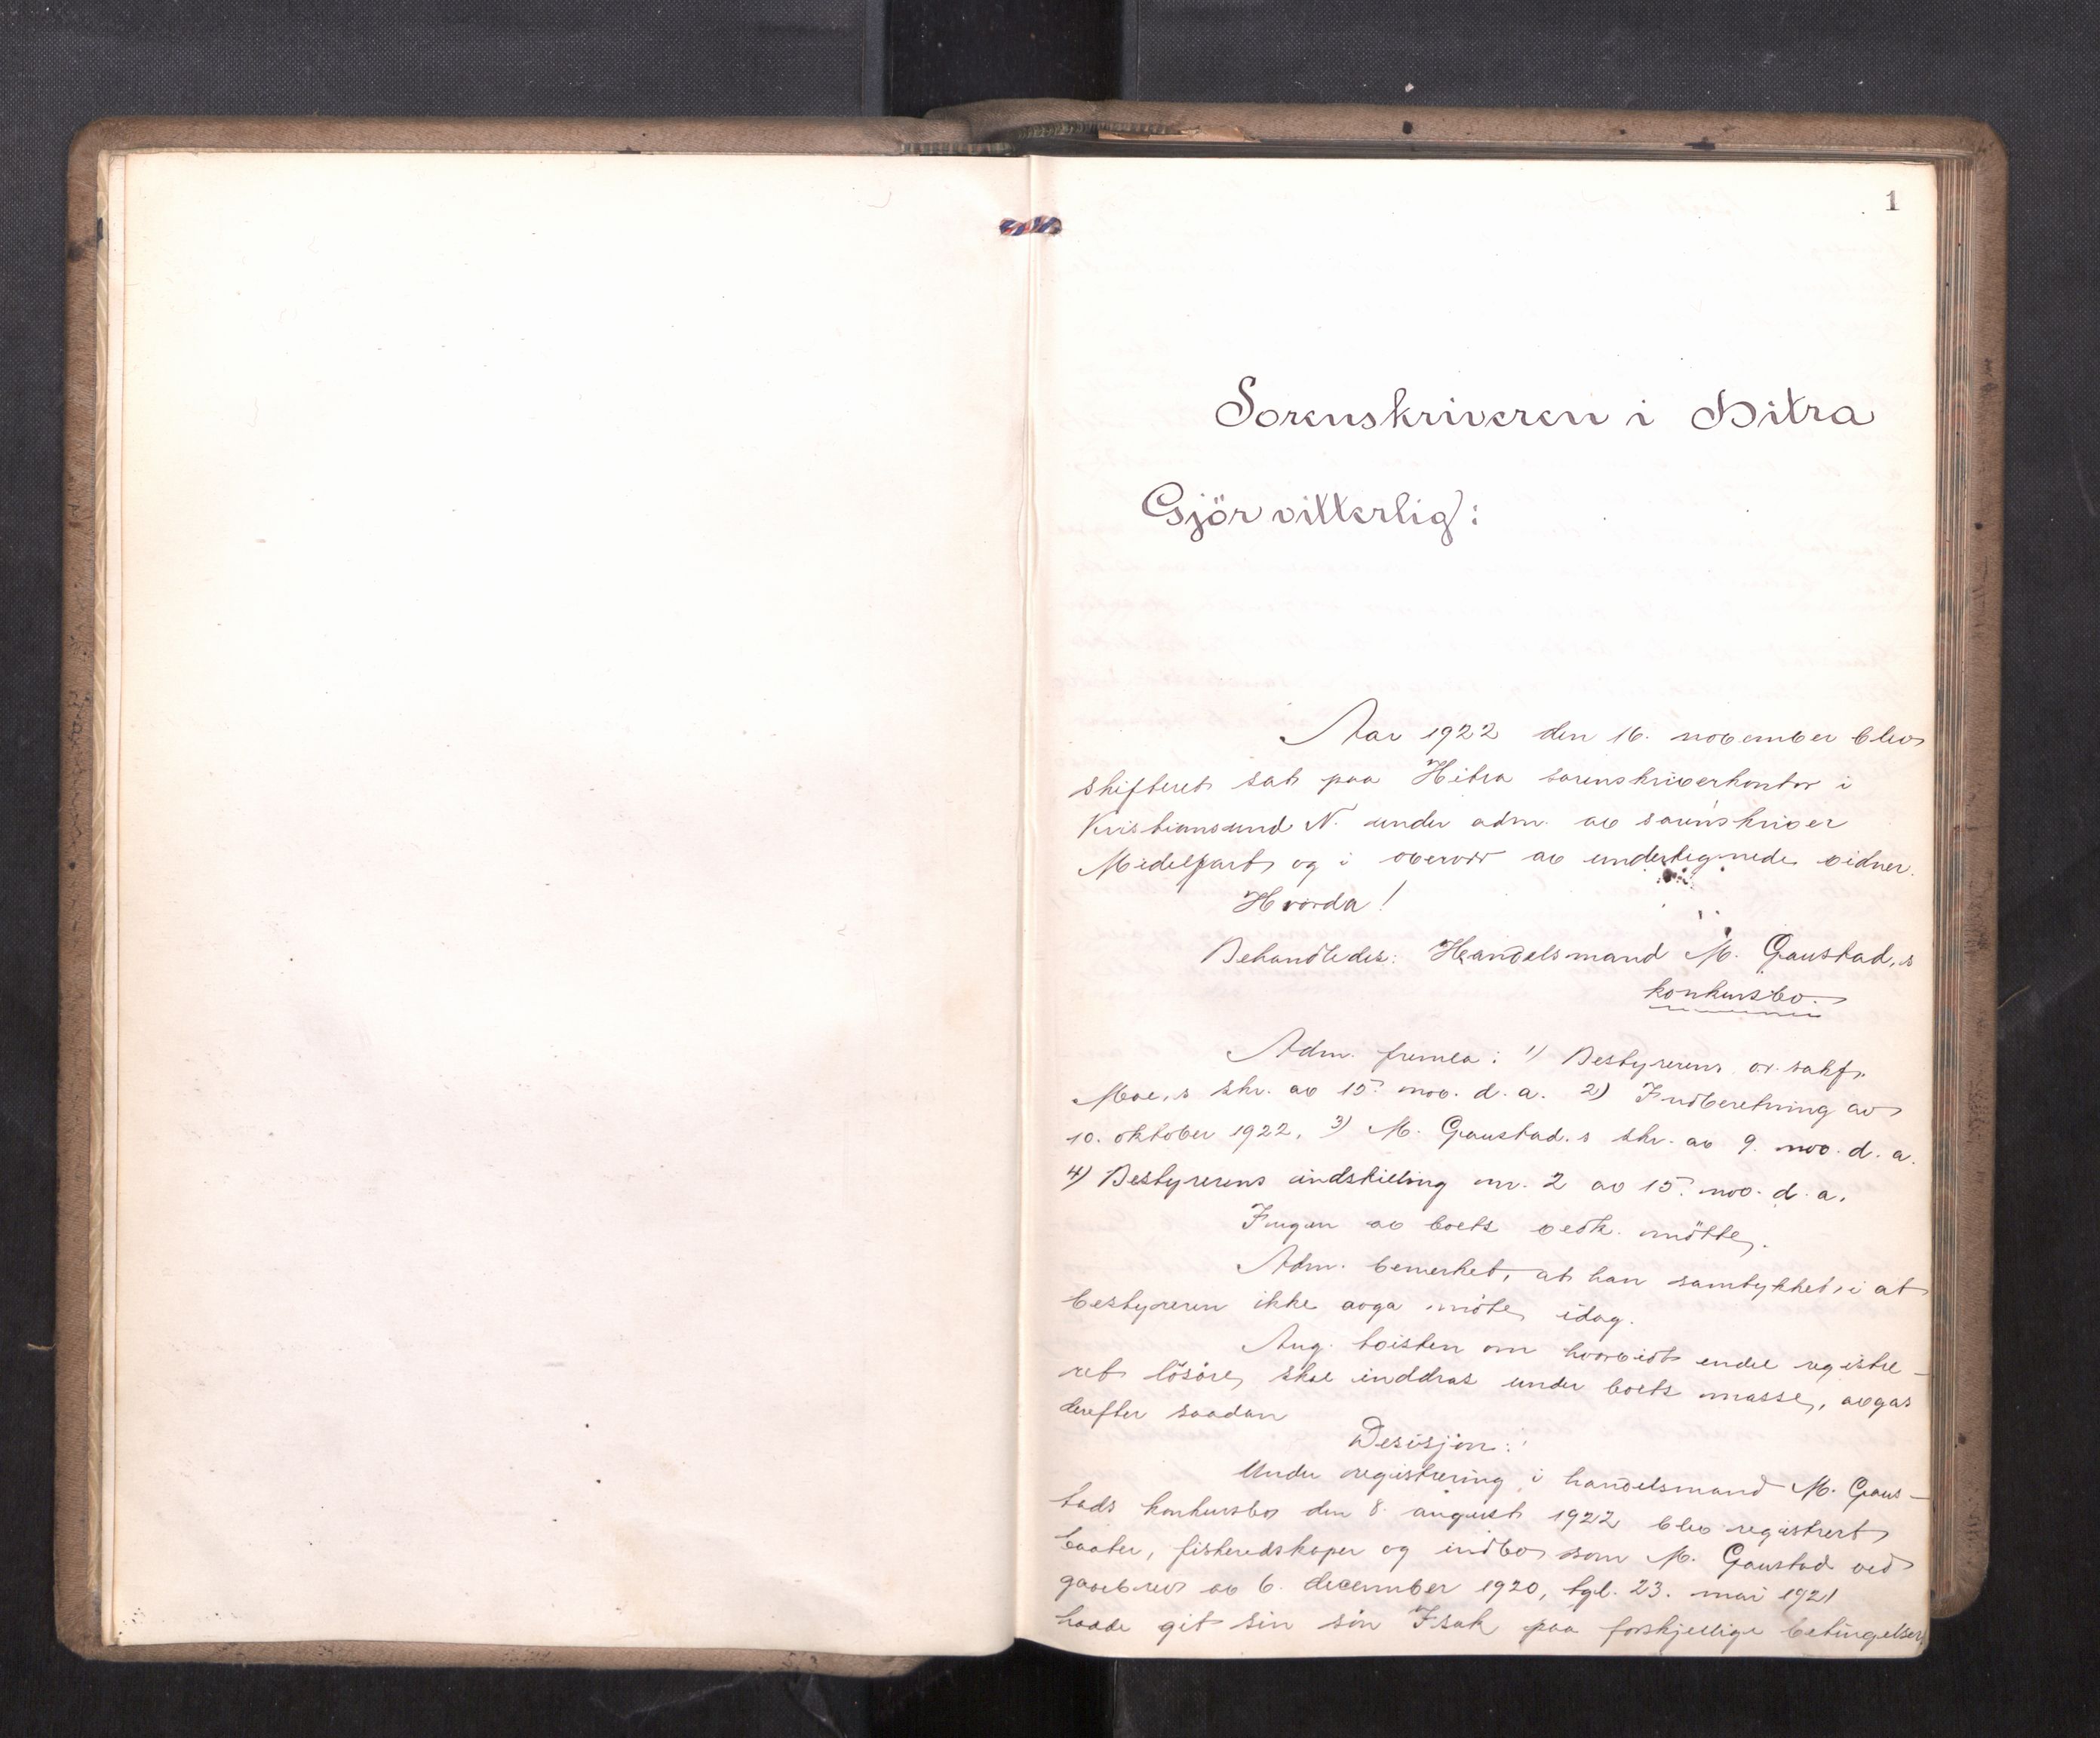 1
Sorenskriveren i Hitra
Gjör vitterlig:
Aar 1922 den 16. november blev
skifteret sat paa Hitra sorenskriverkontor i
Kristiansund N. under adm. av sorenskriver
Midelfart og i overvær av undertegnede vidner.
Hvorda!
Behandledes: Handelsmand M. Gaustad,s
konkursbo.
Adm. fremla: 1) Bestyrerens or. sakf.
Moe,s skr. av 15. nov. d. a. 2) Indberetning av
10. oktober 1922, 3) M. Gaustad.s skr. av 9. nov. d. a.
4) Bestyrerens indstilling nr. 2 av 15. nov. d. a.
Ingen av boets vedk. mötte.
Adm. bemerket, at han samtykket i at
bestyreren ikke avga möte idag.
Ang. tvisten om hvorvidt endel registre-
ret lösöre skal inddras under boets masse, avgas
derefter saadan
Desisjon:
Under registrering i handelsmand M. Gaus-
tads konkursbo den 8. august 1922 blev registrert
baater, fiskeredskaper og indbo som M. Gaustad ved
gavebrev av 6. december 1920, tgl. 23. mai 1921
hadde git sin sön Isak paa forskjellige betingelser,